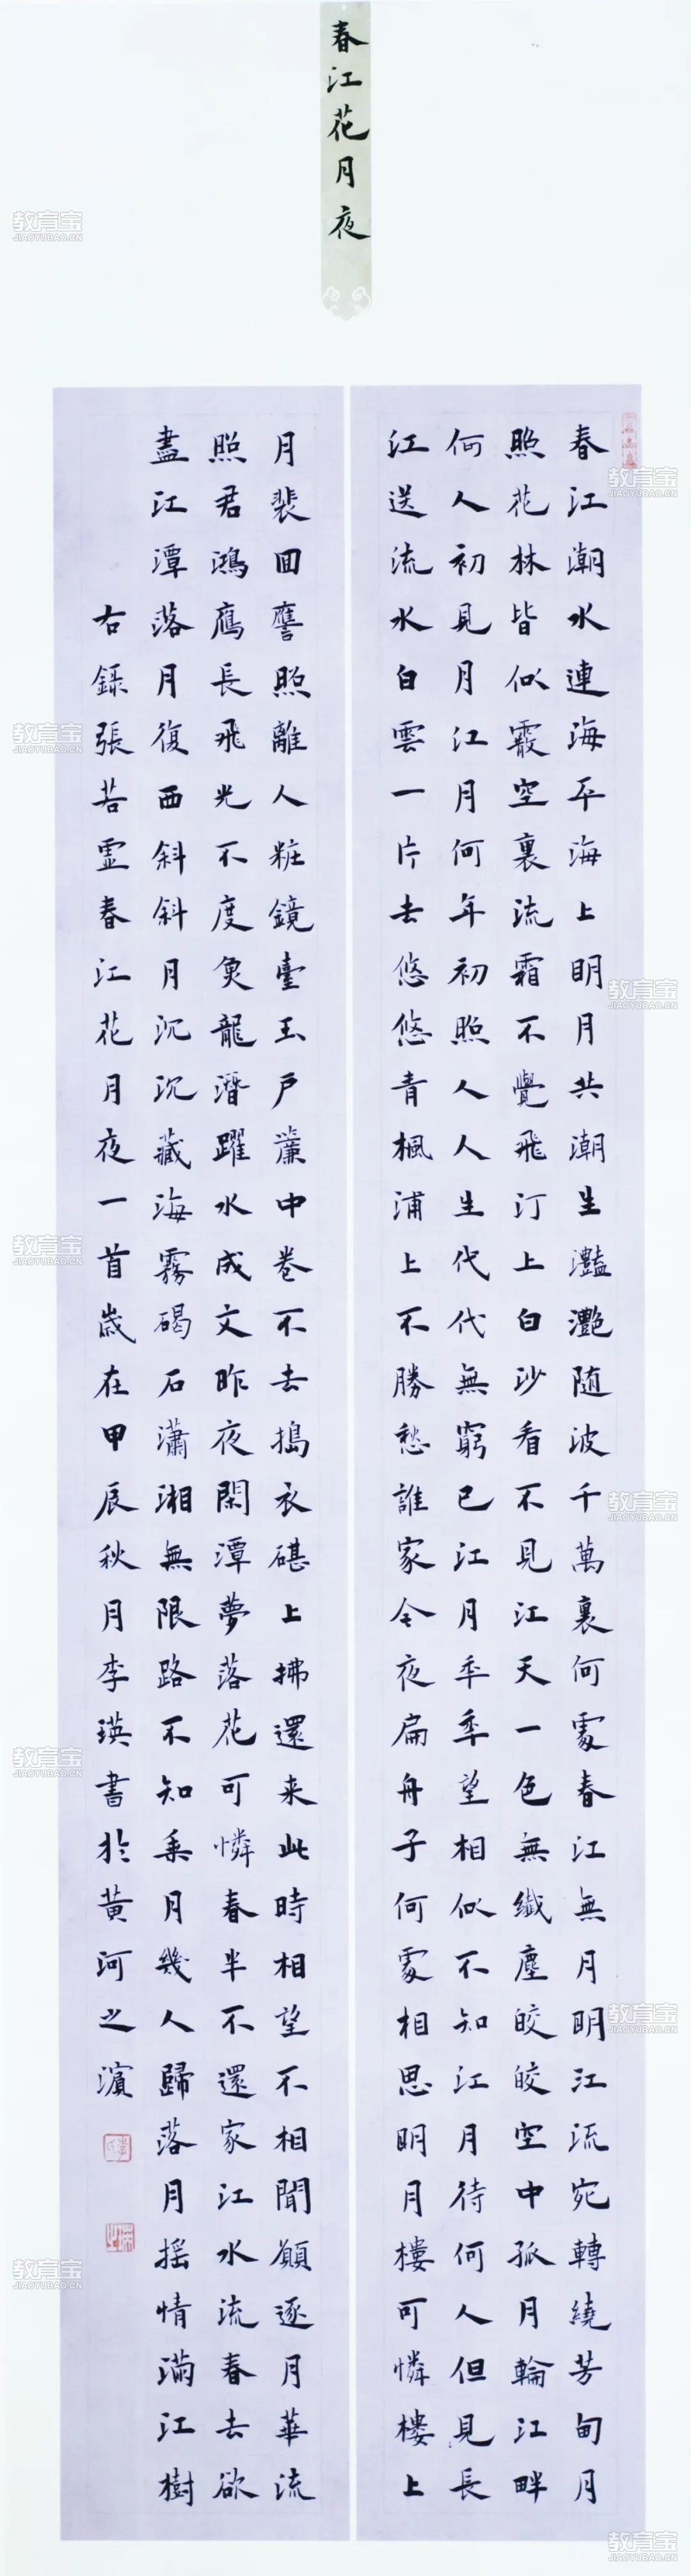 春江花月夜
春江潮水連海平海上明月共潮生灩灧随波千萬裏何處春江無月明江流宛轉繞芳甸月
照花林皆似霰空裏流霜不覺飛汀上白沙看不見江天一色無纖塵皎皎空中孤月輪江畔
何人初見月江月何年初照人人生代代無窮已江月年年望相似不知江月待何人但見長
江送流水白雲一片去悠悠青楓浦上不勝愁誰家今夜扁舟子何處相思明月樓可憐樓上
月裴回譍照離人粧鏡臺玉戶簾中卷不去搗衣碪上拂還来此時相望不相聞願逐月華流
照君鴻鴈長飛光不度魚龍潛躍水成文昨夜閑潭夢落花可憐春半不還家江水流春去欲
盡江潭落月復西斜斜月沉沉藏海霧碣石瀟湘無限路不知乘月幾人歸落月摇情滿江樹
右録張若虛春江花月夜一首歲在甲辰秋月李瑛書於黃河之濱
教育宝
JIAOYUBAO.CN
教育宝
JIAOYUBAO.CN
教育宝
JIAOYUBAO.CN
教育宝
JIAOYUBAO.CN
教育宝
JIAOYUBAO.CN
教育宝
JIAOYUBAO.CN
教育宝
JIAOYUBAO.CN
教育宝
JIAOYUBAO.CN
教育宝
JIAOYUBAO.CN
教育宝
JIAOYUBAO.CN